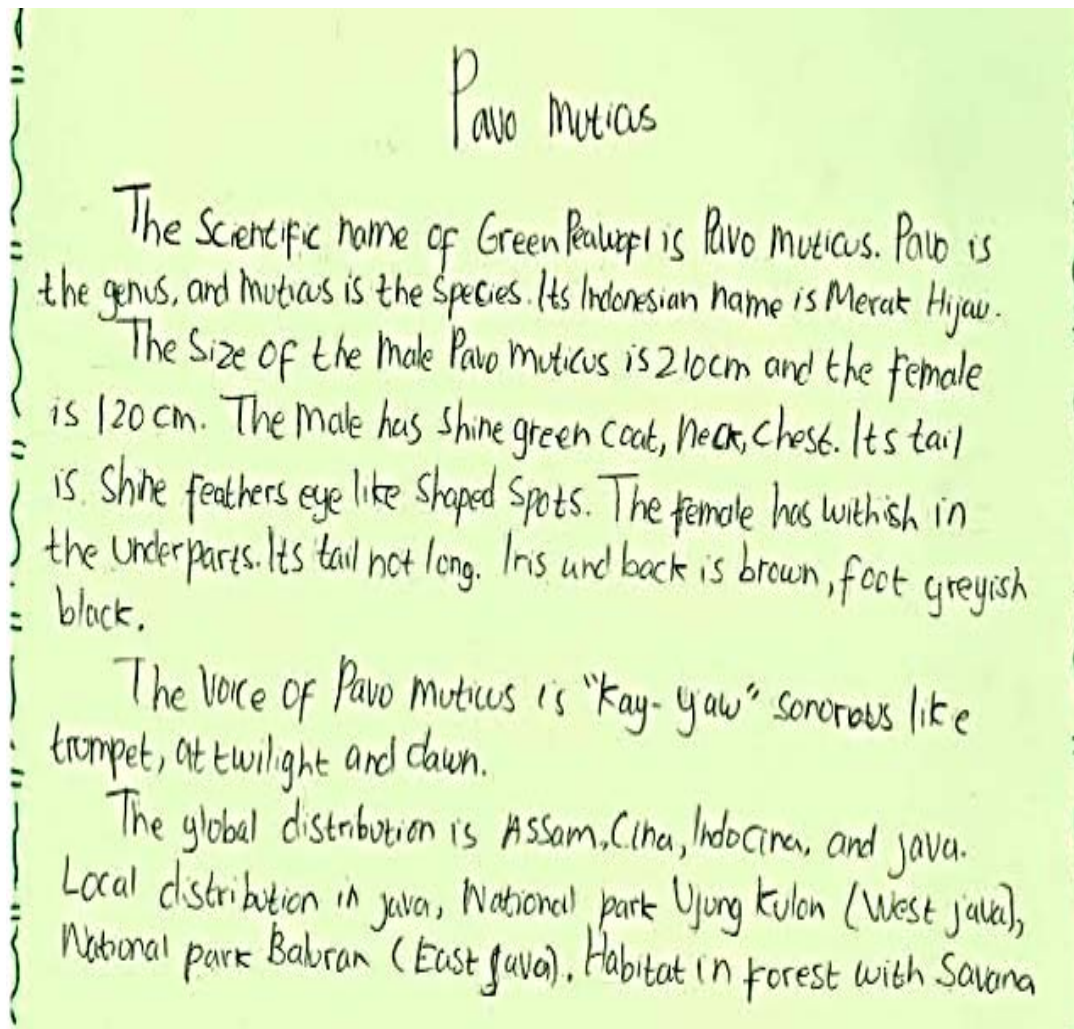 Pavo muticus
The Scientific name of Green Peafowl is Pavo muticus. Pavo is
the genus, and muticus is the species. Its Indonesian name is Merak Hijau.
The Size of the male Pavo muticus is 210cm and the female
is 120 cm. The male has shine green coat, neck, chest. Its tail
is shine feathers eye like shaped spots. The female has withish in
the underparts. Its tail not long. Iris and back is brown, foot greyish
black.
The voice of Pavo muticus is "kay-yaw" sonorous like
trompet, at twilight and dawn.
The global distribution is Assam, Cina, Indocina, and java.
Local distribution in java, National park Ujung kulon (West java),
National park Baluran (East Java). Habitat in forest with Savana